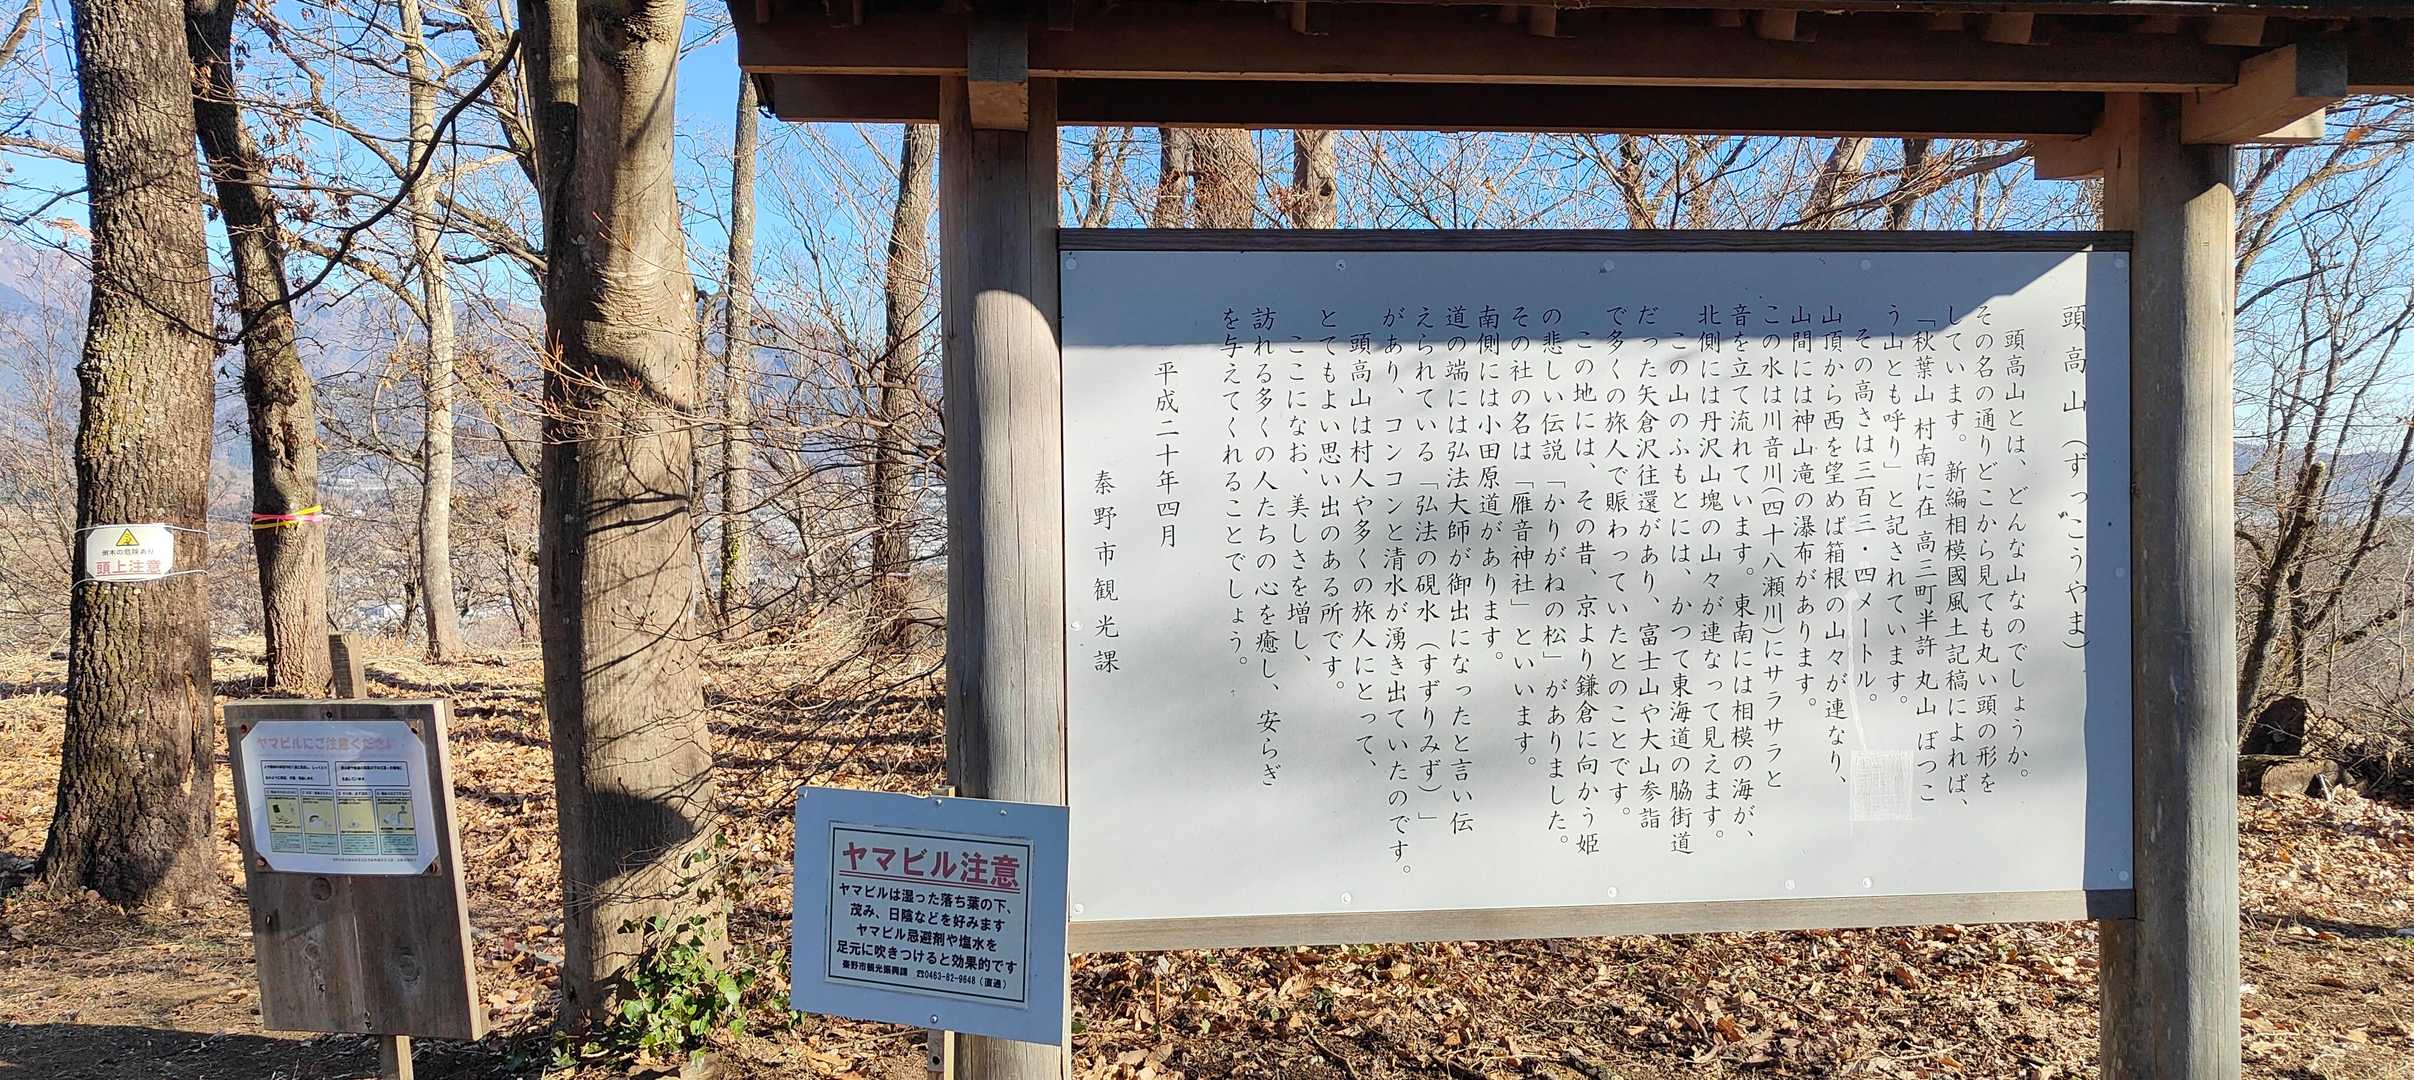 頭高山（ずっこうやま）
頭高山とは、どんな山なのでしょうか。
その名の通りどこから見ても丸い頭の形を
しています。新編相模國風土記稿によれば、
「秋葉山 村南に在 高三町半許 丸山 ぼっこ
う山とも呼り」と記されています。
その高さは三百三・四メートル。
山頂から西を望めば箱根の山々が連なり、
山間には神山滝の瀑布があります。
この水は川音川（四十八瀬川）にサラサラと
音を立て流れています。東南には相模の海が、
北側には丹沢山塊の山々が連なって見えます。
この山のふもとには、かつて東海道の脇街道
だった矢倉沢往還があり、富士山や大山参詣
で多くの旅人で賑わっていたとのことです。
この地には、その昔、京より鎌倉に向かう姫
の悲しい伝説「かりがねの松」がありました。
その社の名は「雁音神社」といいます。
南側には小田原道があります。
道の端には弘法大師が御出になったと言い伝
えられている「弘法の硯水（すずりみず）」
があり、コンコンと清水が湧き出ていたのです。
頭高山は村人や多くの旅人にとって、
とてもよい思い出のある所です。
ここになお、美しさを増し、
訪れる多くの人たちの心を癒し、安らぎ
を与えてくれることでしょう。
平成二十年四月
秦野市観光課
倒木の危険あり
頭上注意
ヤマビルにご注意ください
ヤマビル注意
ヤマビルは湿った落ち葉の下、
茂み、日陰などを好みます
ヤマビル忌避剤や塩水を
足元に吹きつけると効果的です
秦野市観光振興課 ☎0463-82-9648（直通）